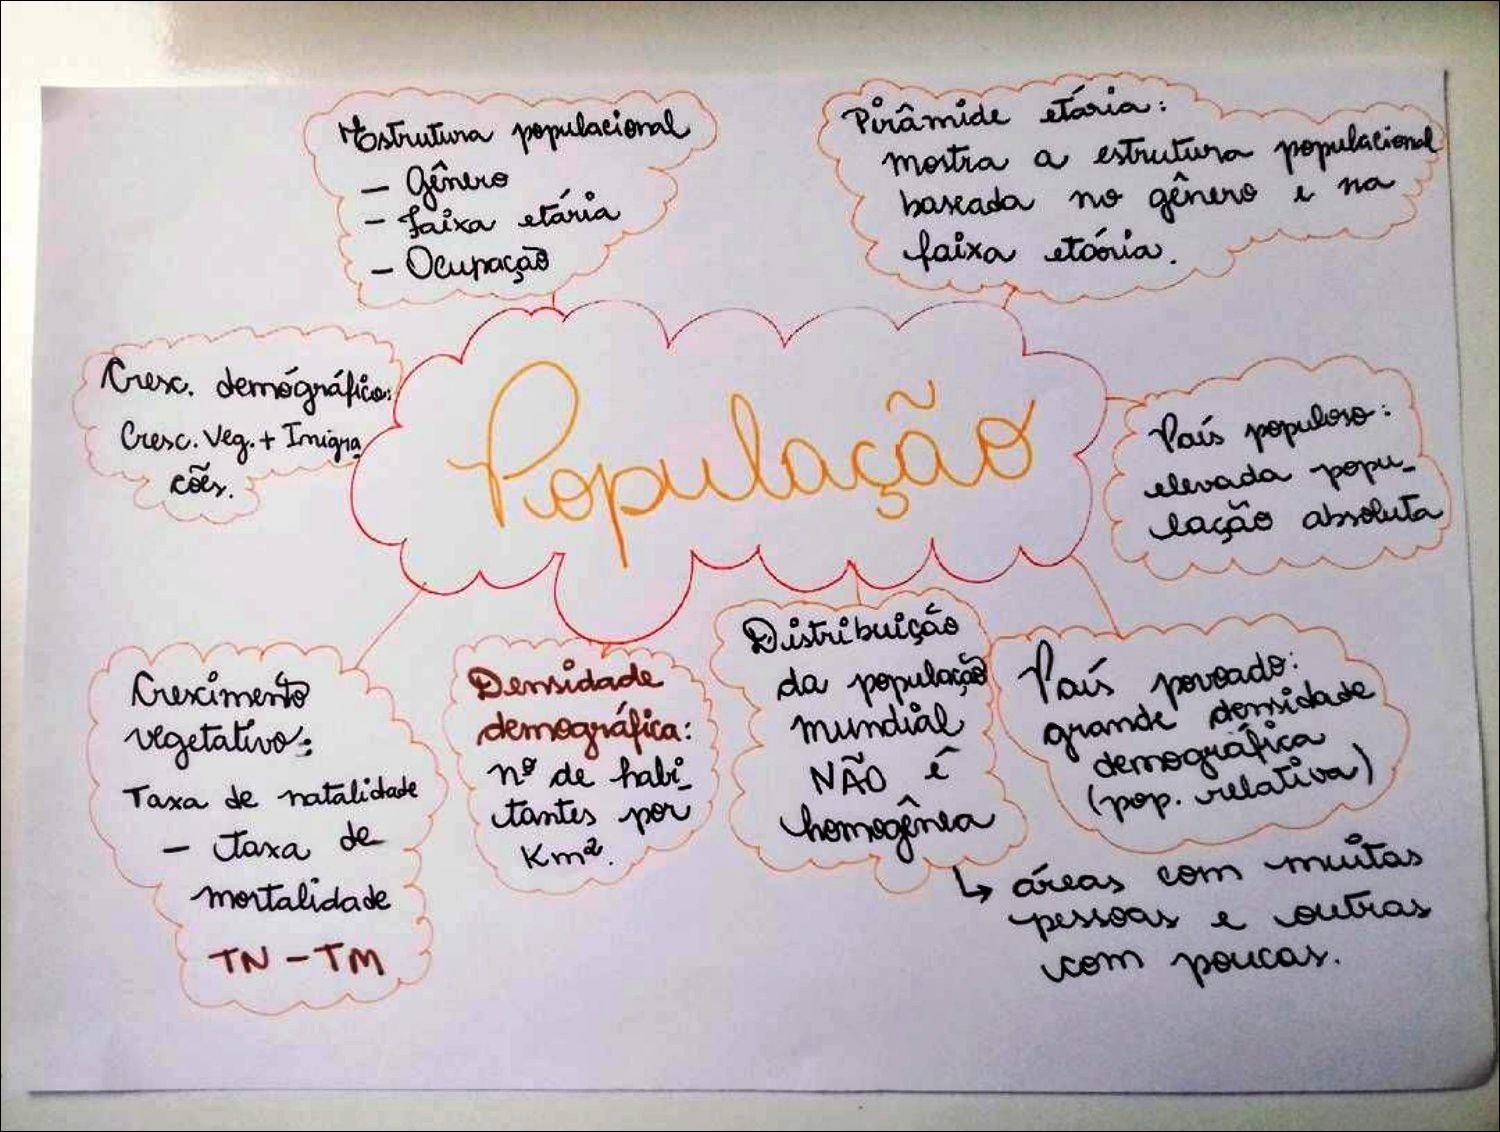 Estrutura populacional
- Gênero
- Faixa etária
- Ocupação
Pirâmide etária:
mostra a estrutura populacional
baseada no gênero e na
faixa etária.
Cresc. demográfico:
Cresc. Veg. + Imigra
ções.
População
País populoso:
elevada popu-
lação absoluta
Crescimento
vegetativo:
Taxa de natalidade
- taxa de
mortalidade
TN - TM
Densidade
demográfica:
nº de habi-
tantes por
Km².
Distribuição
da população
mundial
NÃO é
homogênea
↳ áreas com muitas
pessoas e outras
com poucas.
País povoado:
grande densidade
demográfica
(pop. relativa)